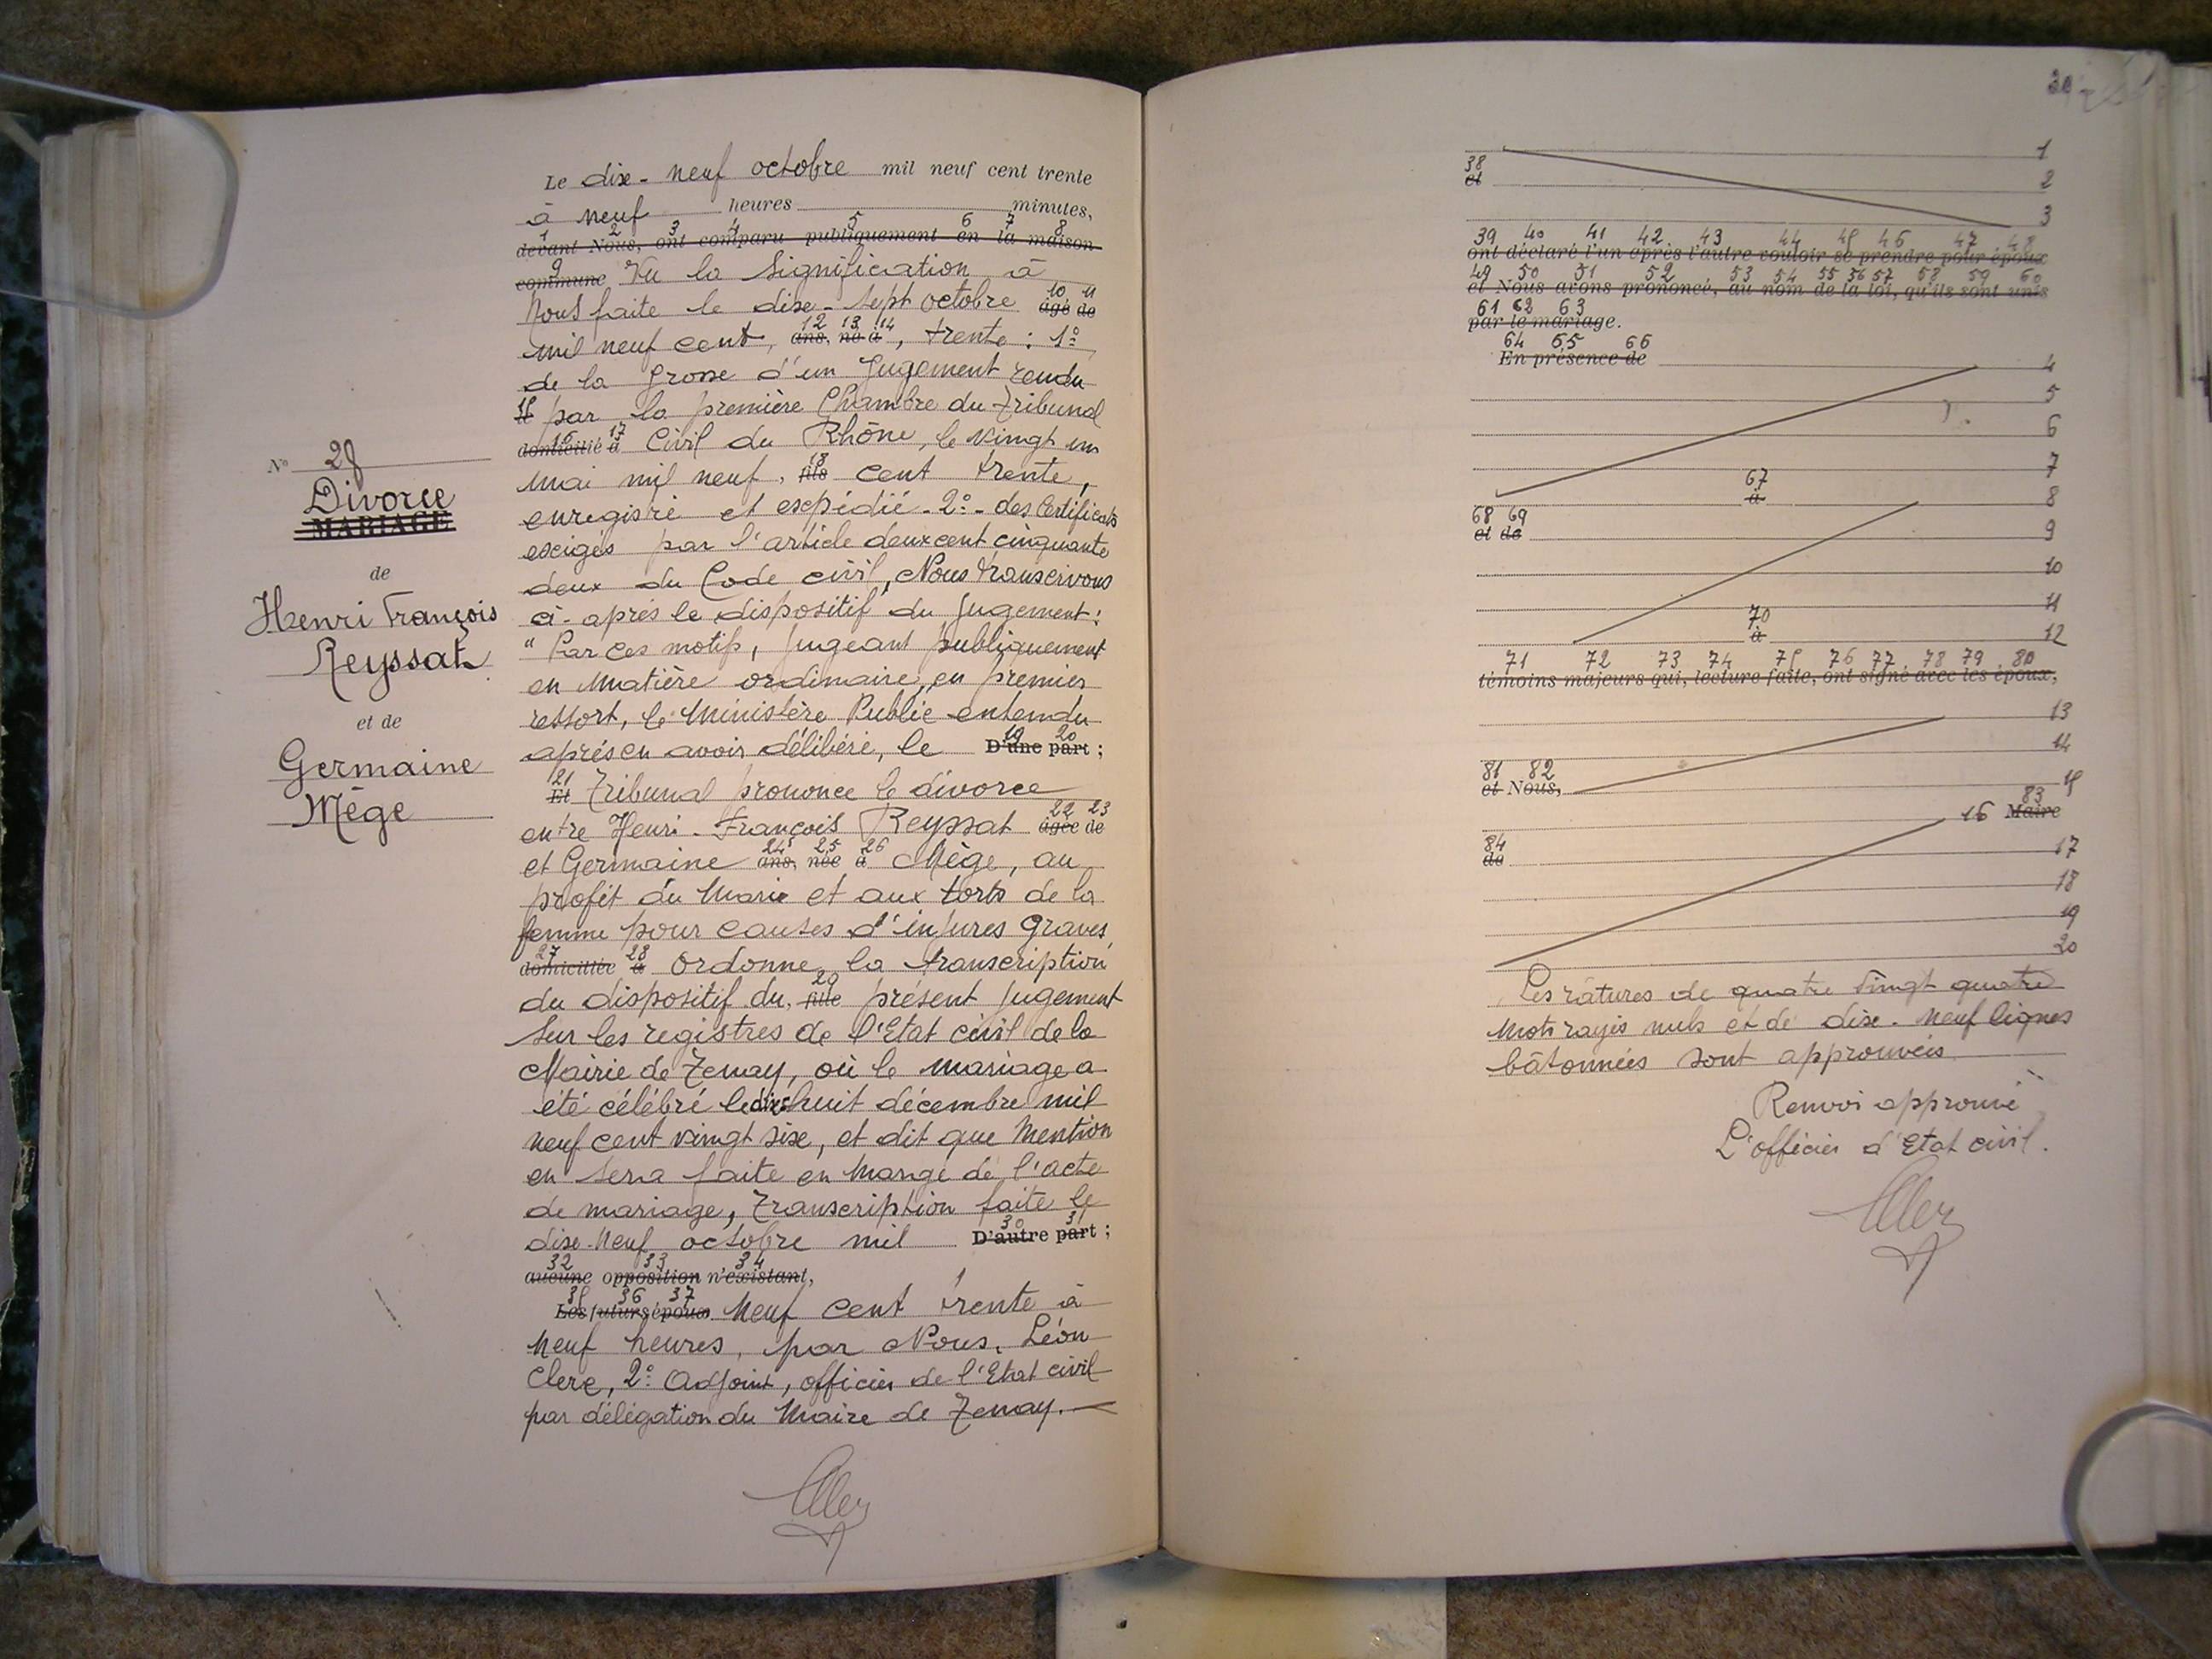 N° 28
Divorce
MARIAGE
de
Henri François
Reyssat
et de
Germaine
Mège
Le dix-neuf octobre mil neuf cent trente
à neuf heures minutes,
1 2 3 4 5 6 7 8
devant Nous, ont comparu publiquement en la maison
9
commune Vu la signification à
10 11
Nous faite le dix-sept octobre âgé de
12 13 14
mil neuf cent, ans, né à, trente : 1°
de la grosse d'un Jugement rendu
15
par la première Chambre du Tribunal
16 17
domicilié à Civil du Rhône, le vingt un
18
mai mil neuf, fils cent trente,
enregistré et expédié - 2° - des Certificats
exigés par l'article deux cent cinquante
deux du Code civil, Nous transcrivons
ci-après le dispositif du Jugement :
" Par ces motifs, Jugeant publiquement
en matière ordinaire, en premier
ressort, le Ministère Public entendu
19 20
après en avoir délibéré, le D'une part ;
21
Et Tribunal prononce le divorce
22 23
entre Henri-François Reyssat âgée de
24 25 26
et Germaine ans, née à Mège, au
profit du Mari et aux torts de la
femme pour causes d'injures graves,
27 28
domiciliée à Ordonne la transcription
29
du dispositif du fille présent Jugement
sur les registres de l'Etat civil de la
Mairie de Ternay, où le mariage a
été célébré le dix huit décembre mil
neuf cent vingt six, et dit que Mention
en sera faite en marge de l'acte
de mariage, Transcription faite le
30 31
dix-neuf octobre mil D'autre part ;
32 33 34
aucune opposition n'existant,
35 36 37
Les futurs époux Neuf cent trente à
neuf heures, par Nous, Léon
Clerc, 2° Adjoint, officier de l'Etat civil
par délégation du Maire de Ternay.
1
38
et 2
3
39 40 41 42 43 44 45 46 47 48
ont déclaré l'un après l'autre vouloir se prendre pour époux
49 50 51 52 53 54 55 56 57 58 59 60
et Nous avons prononcé, au nom de la loi, qu'ils sont unis
61 62 63
par le mariage.
64 65 66
En présence de 4
5
6
7
67
à 8
68 69
et de 9
10
11
70
à 12
71 72 73 74 75 76 77 78 79 80
témoins majeurs qui, lecture faite, ont signé avec les époux,
13
14
81 82
et Nous, 15
83
16 Maire
84
de 17
18
19
20
Les ratures de quatre vingt quatre
mots rayés nuls et de dix-neuf lignes
bâtonnées sont approuvées
Renvoi approuvé
L'officier d'Etat civil.